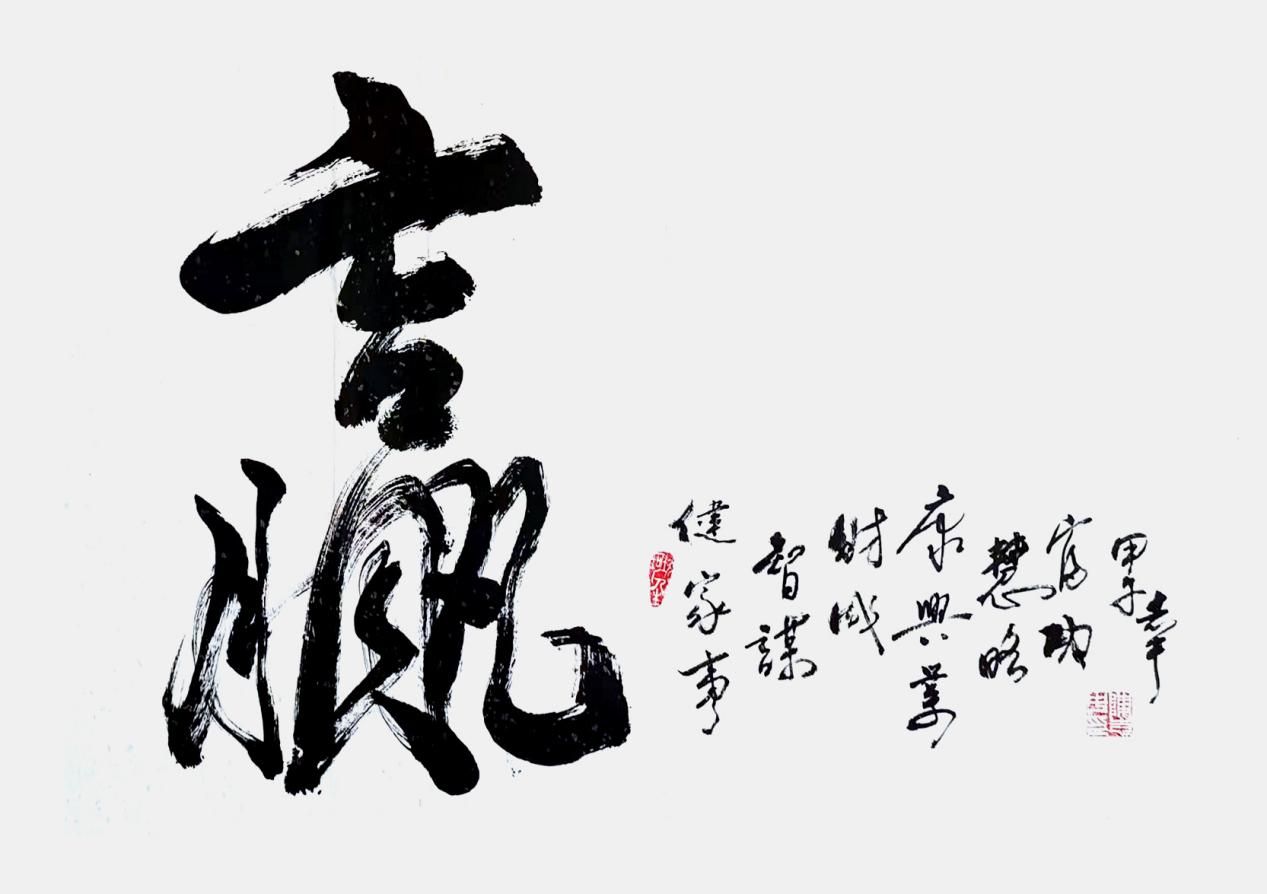 贏
健家事
智謀
財成
康興業
慧略
富功
甲午